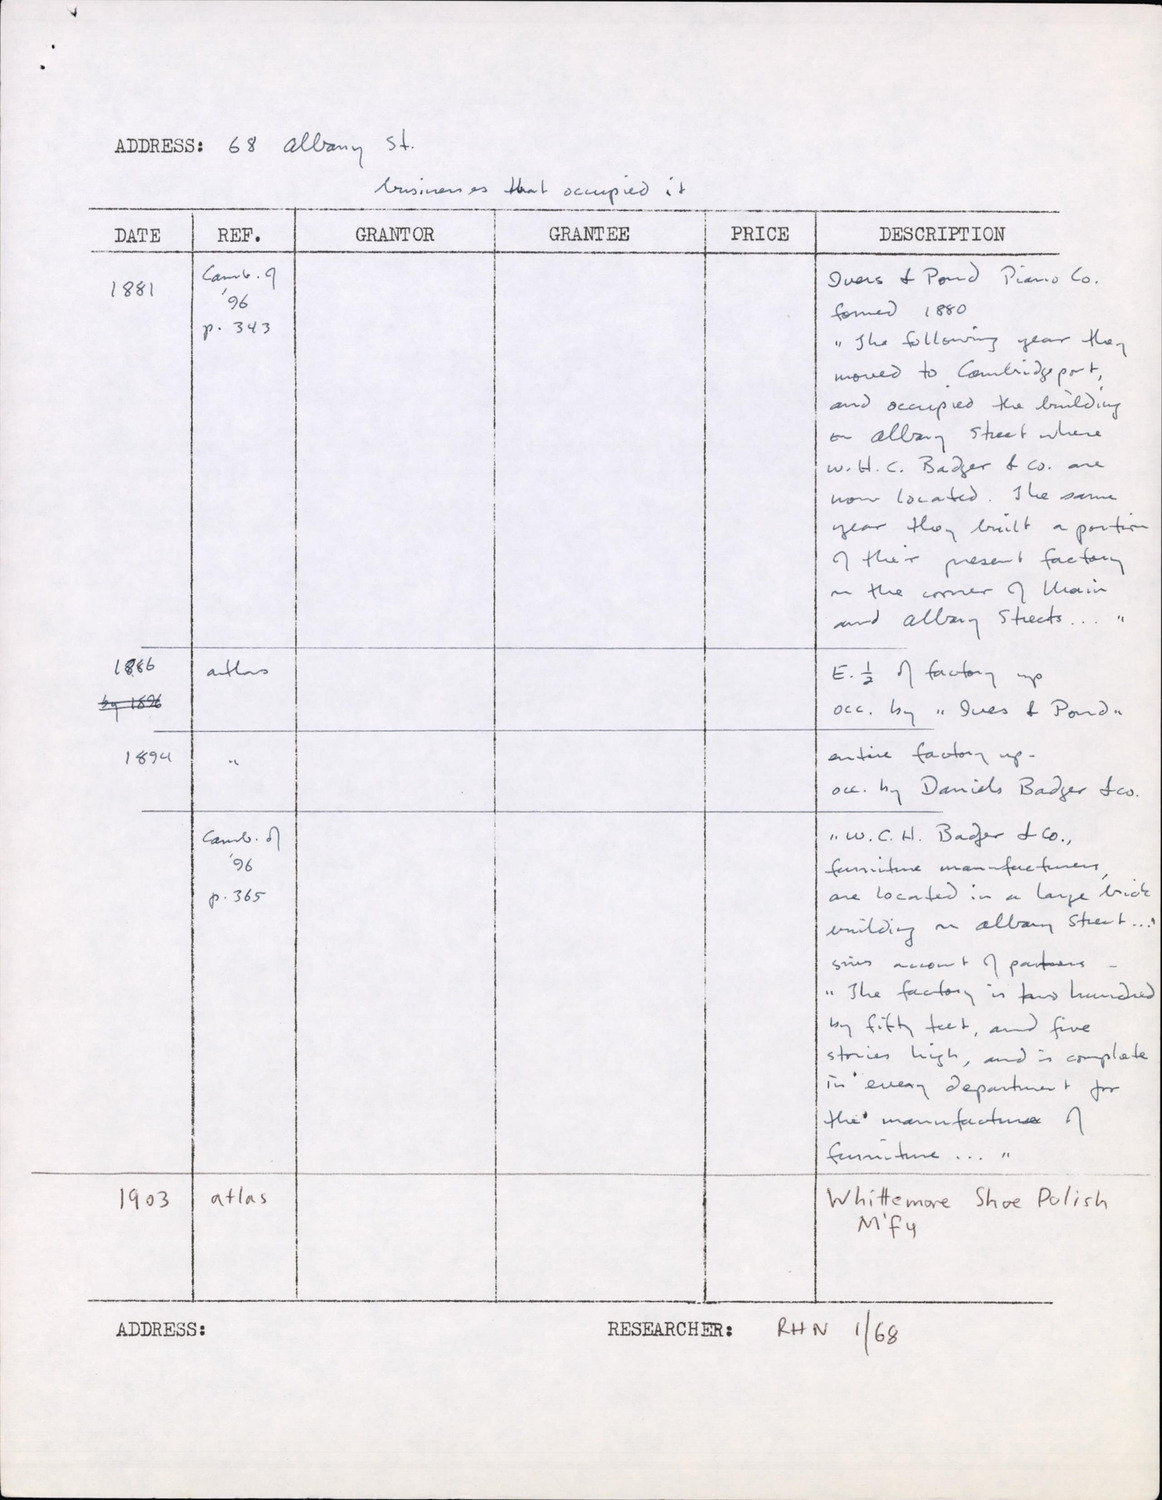 ADDRESS: 68 Albany St.
businesses that occupied it
DATE REF. GRANTOR GRANTEE PRICE DESCRIPTION
1881
Camb. of
'96
p. 343
Ivers & Pond Piano Co.
formed 1880
"The following year they
moved to Cambridgeport,
and occupied the building
on Albany Street where
W.H.C. Badger & Co. are
now located. The same
year they built a portion
of their present factory
on the corner of Main
and Albany Streets... "
1886
by 1896
atlas
E. ½ of factory up
occ. by "Ives & Pond"
1894 "
entire factory up-
occ. by Daniels Badger & co.
Camb. of
'96
p. 365
"W.C.H. Badger & Co.,
furniture manufacturers,
are located in a large brick
building on Albany Street..."
gives account of partners -
"The factory is two hundred
by fifty feet, and five
stories high, and is complete
in every department for
the manufacture of
furniture ... "
1903 atlas
Whittemore Shoe Polish
M'fy
ADDRESS: RESEARCHER: RHN 1/68